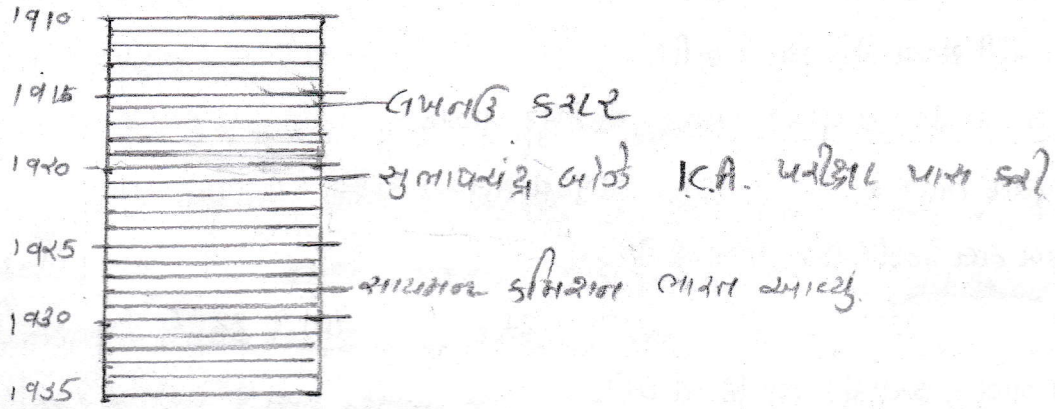 ૧૯૧૦
૧૯૧૫
લખનઉ કરાર
૧૯૨૦
સુભાષચંદ્ર બોઝે I.C.A. પરીક્ષા પાસ કરી
૧૯૨૫
સાયમન કમિશન ભારત આવ્યું.
૧૯૩૦
૧૯૩૫